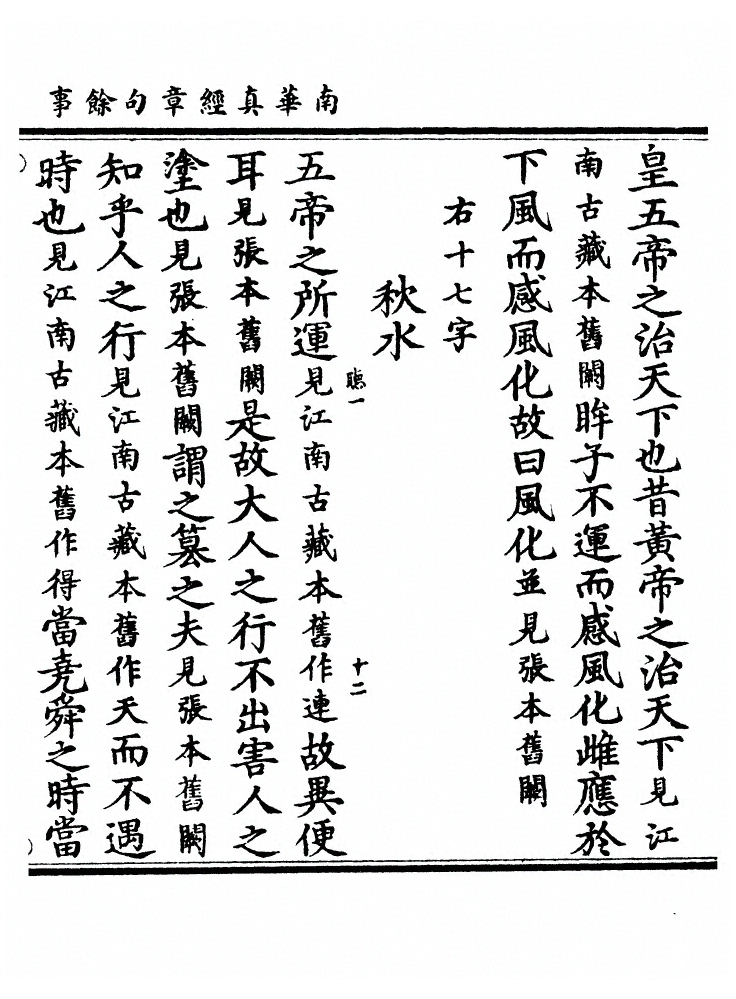 南華真經章句餘事
皇五帝之治天下也昔黃帝之治天下見江
南古藏本舊闕眸子不運而感風化雌應於
下風而感風化故曰風化並見張本舊闕
右十七字
秋水
聽一
十二
五帝之所運見江南古藏本舊作連故異便
耳見張本舊闕是故大人之行不出害人之
塗也見張本舊闕謂之篡之夫見張本舊闕
知乎人之行見江南古藏本舊作天而不遇
時也見江南古藏本舊作得當堯舜之時當